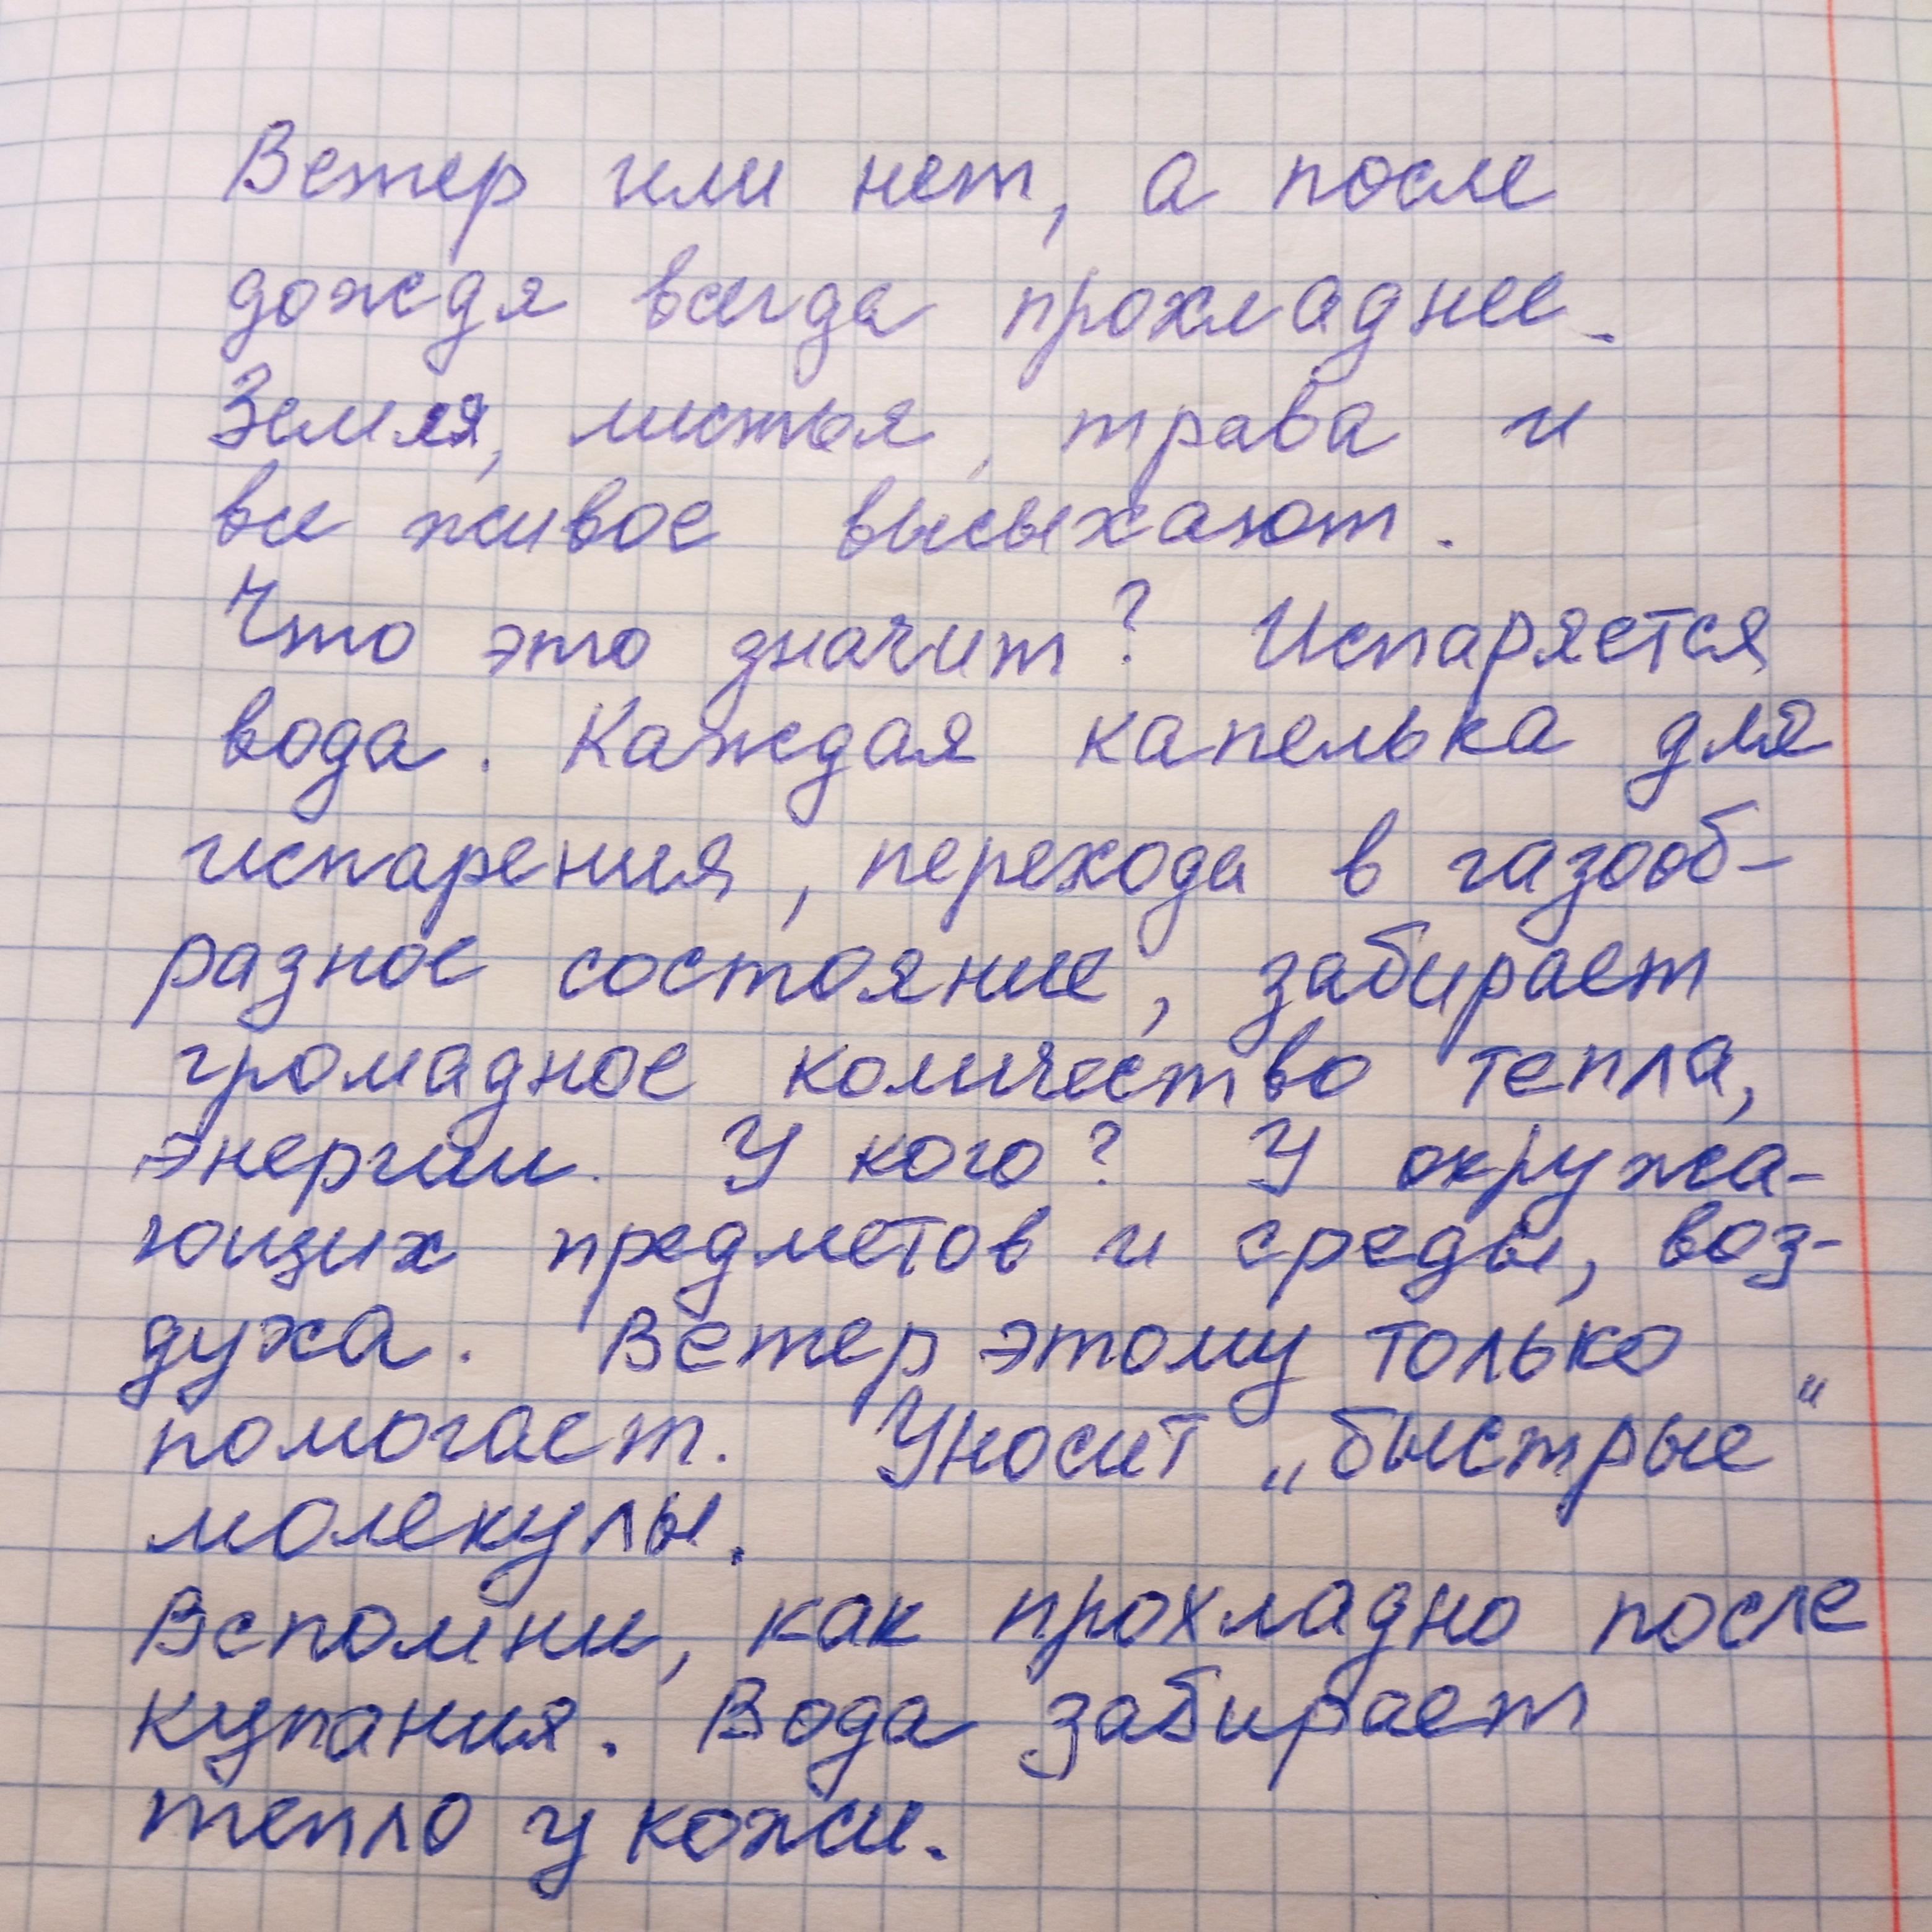 Ветер или нет, а после
дождя всегда прохладнее.
Земля, листья, трава и
все живое высыхают.
Что это значит? Испаряется
вода. Каждая капелька для
испарения, перехода в газооб-
разное состояние, забирает
громадное количество тепла,
энергии. У кого? У окружа-
ющих предметов и среды, воз-
духа. Ветер этому только
помогает. Уносит „быстрые“
молекулы.
Вспомни, как прохладно после
купания. Вода забирает
тепло у кожи.